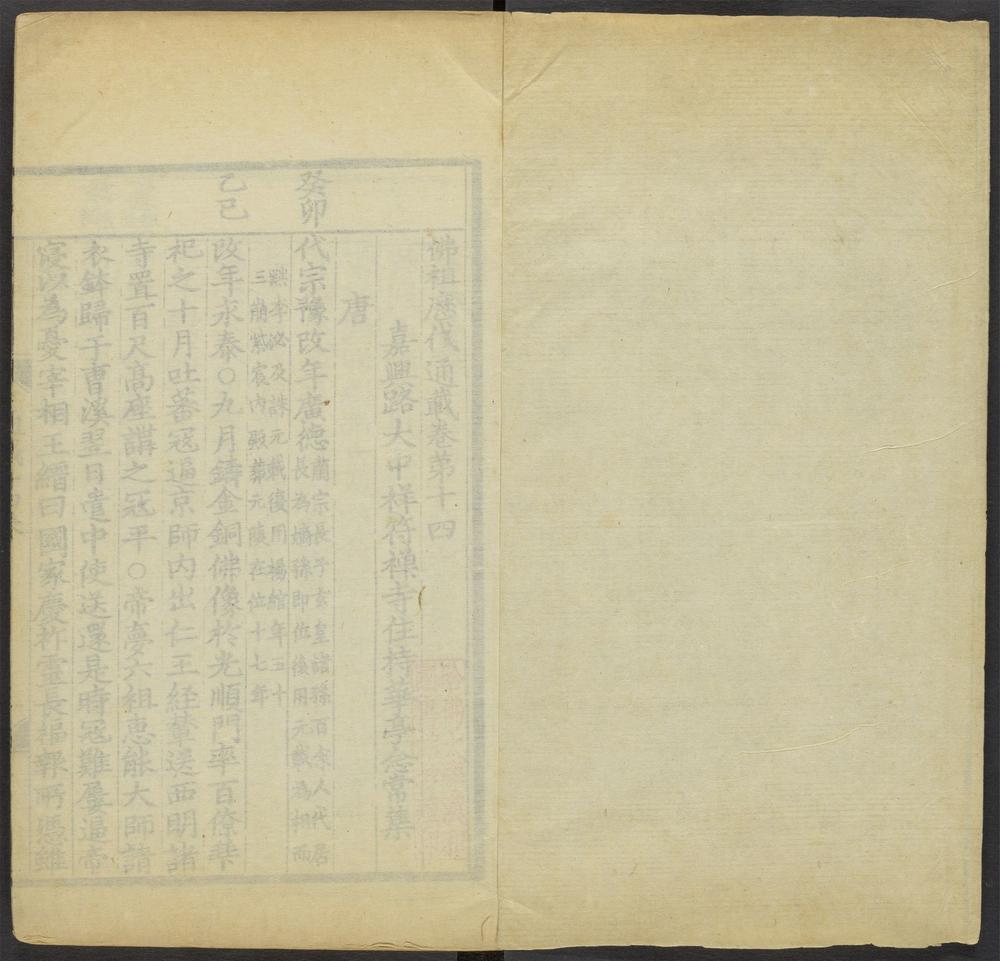 佛祖歷代通載卷第十四
嘉興路大中祥符禪寺住持華亭念常集
唐
癸卯
代宗豫改年廣德
肅宗長子玄皇諸孫百余人代居
長為嫡孫即位後用元載為相而
黜李泌及誅元載復用楊綰年五十
三崩紫宸內殿葬元陵在位十七年
乙巳
改年永泰○九月鑄金銅佛像於光順門率百僚拜
祀之十月吐蕃冦逼京師內出仁王経輦送西明諸
寺置百尺高座講之冦平○帝夢六祖惠能大師請
衣鉢歸于曹溪翌日遣中使送還是時冦難屢逼帝
寑以為憂宰相王縉曰國家慶祚靈長福報所慿雖